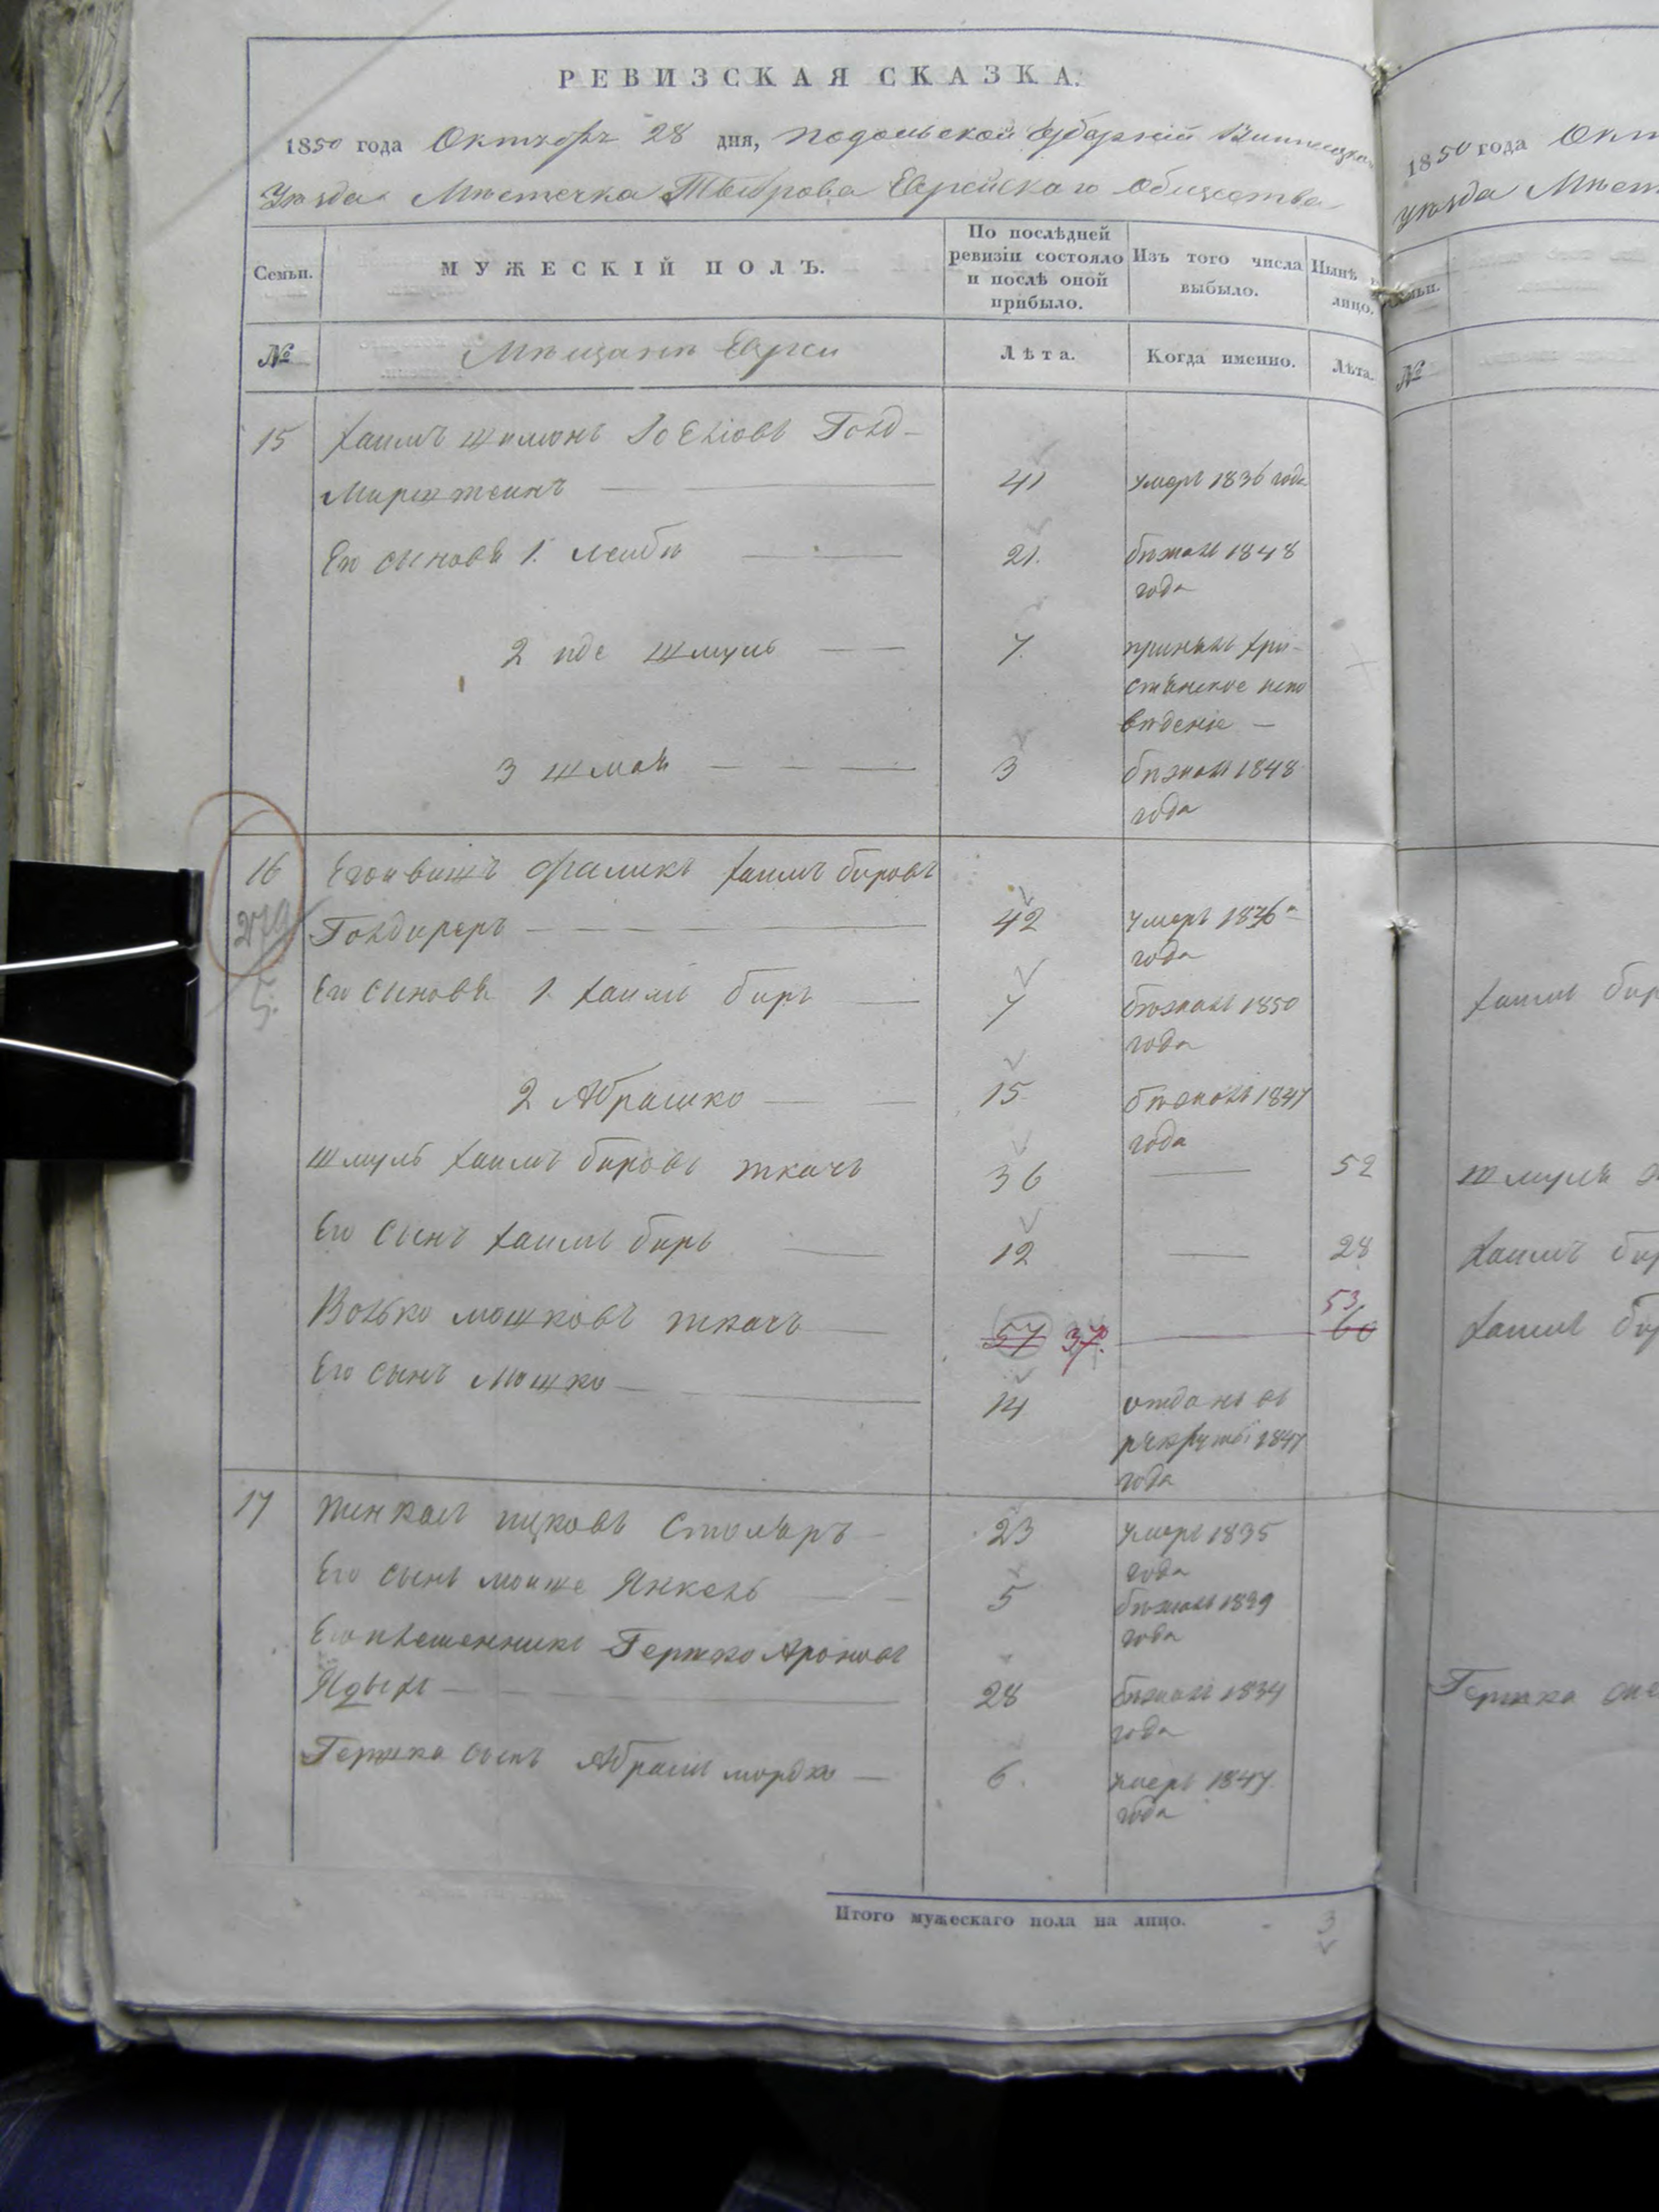 РЕВИЗСКАЯ СКАЗКА.
1850 года Октября 28 дня, подольской Губерніи Винницкаго
Уезда Мѣстечка Тыврова Еврейскаго Общества
Семьи.
МУЖЕСКІЙ ПОЛЪ.
По послѣдней ревизіи состояло и послѣ оной прибыло.
Изъ того числа выбыло.
Нынѣ лицо.
№
Мѣщане Евреи
Лѣта.
Когда именно.
Лѣта.
15 Хаимъ Шимонъ Іоселіовъ Голд-
мирштеинъ 41 умеръ 1836 года
Его сыновя 1. леиба 21. бѣжалъ 1848
года
2 иде шмуль 7. принялъ хри-
стіянское испо
вѣденіе —
3 шмая 3 бѣжалъ 1848
года
16 Фаликъ Хаимъ беровъ
Голдиреръ 42 умеръ 1836
года
Его сыновя 1. Хаимъ беръ 7 бѣжалъ 1850
года
2 Абрамко 15 бѣжалъ 1847
года
Шмуль Хаимъ беровъ ткачъ 36 52
Его сынъ Хаимъ беръ 12 28
Волько мошковъ ткачъ 57 37. 53 60
Его сынъ Мошко 14 отданъ въ
рекруты 1847
года
17 Пинкасъ ицковъ Столяръ 23 умеръ 1835
года
Его сынъ моише Янкель 5 бѣжалъ 1839
года
Его племенникъ Гершко Ароновъ
28 бѣжалъ 1834
года
Гершка сынъ Абрамъ мордко 6. умеръ 1847
года
Итого мужескаго пола на лицо. 3
1850 года Окт
уезда Мѣст
№
Хаимъ бер
Шмуля
Хаимъ бер
Хаимъ бер
Гершка